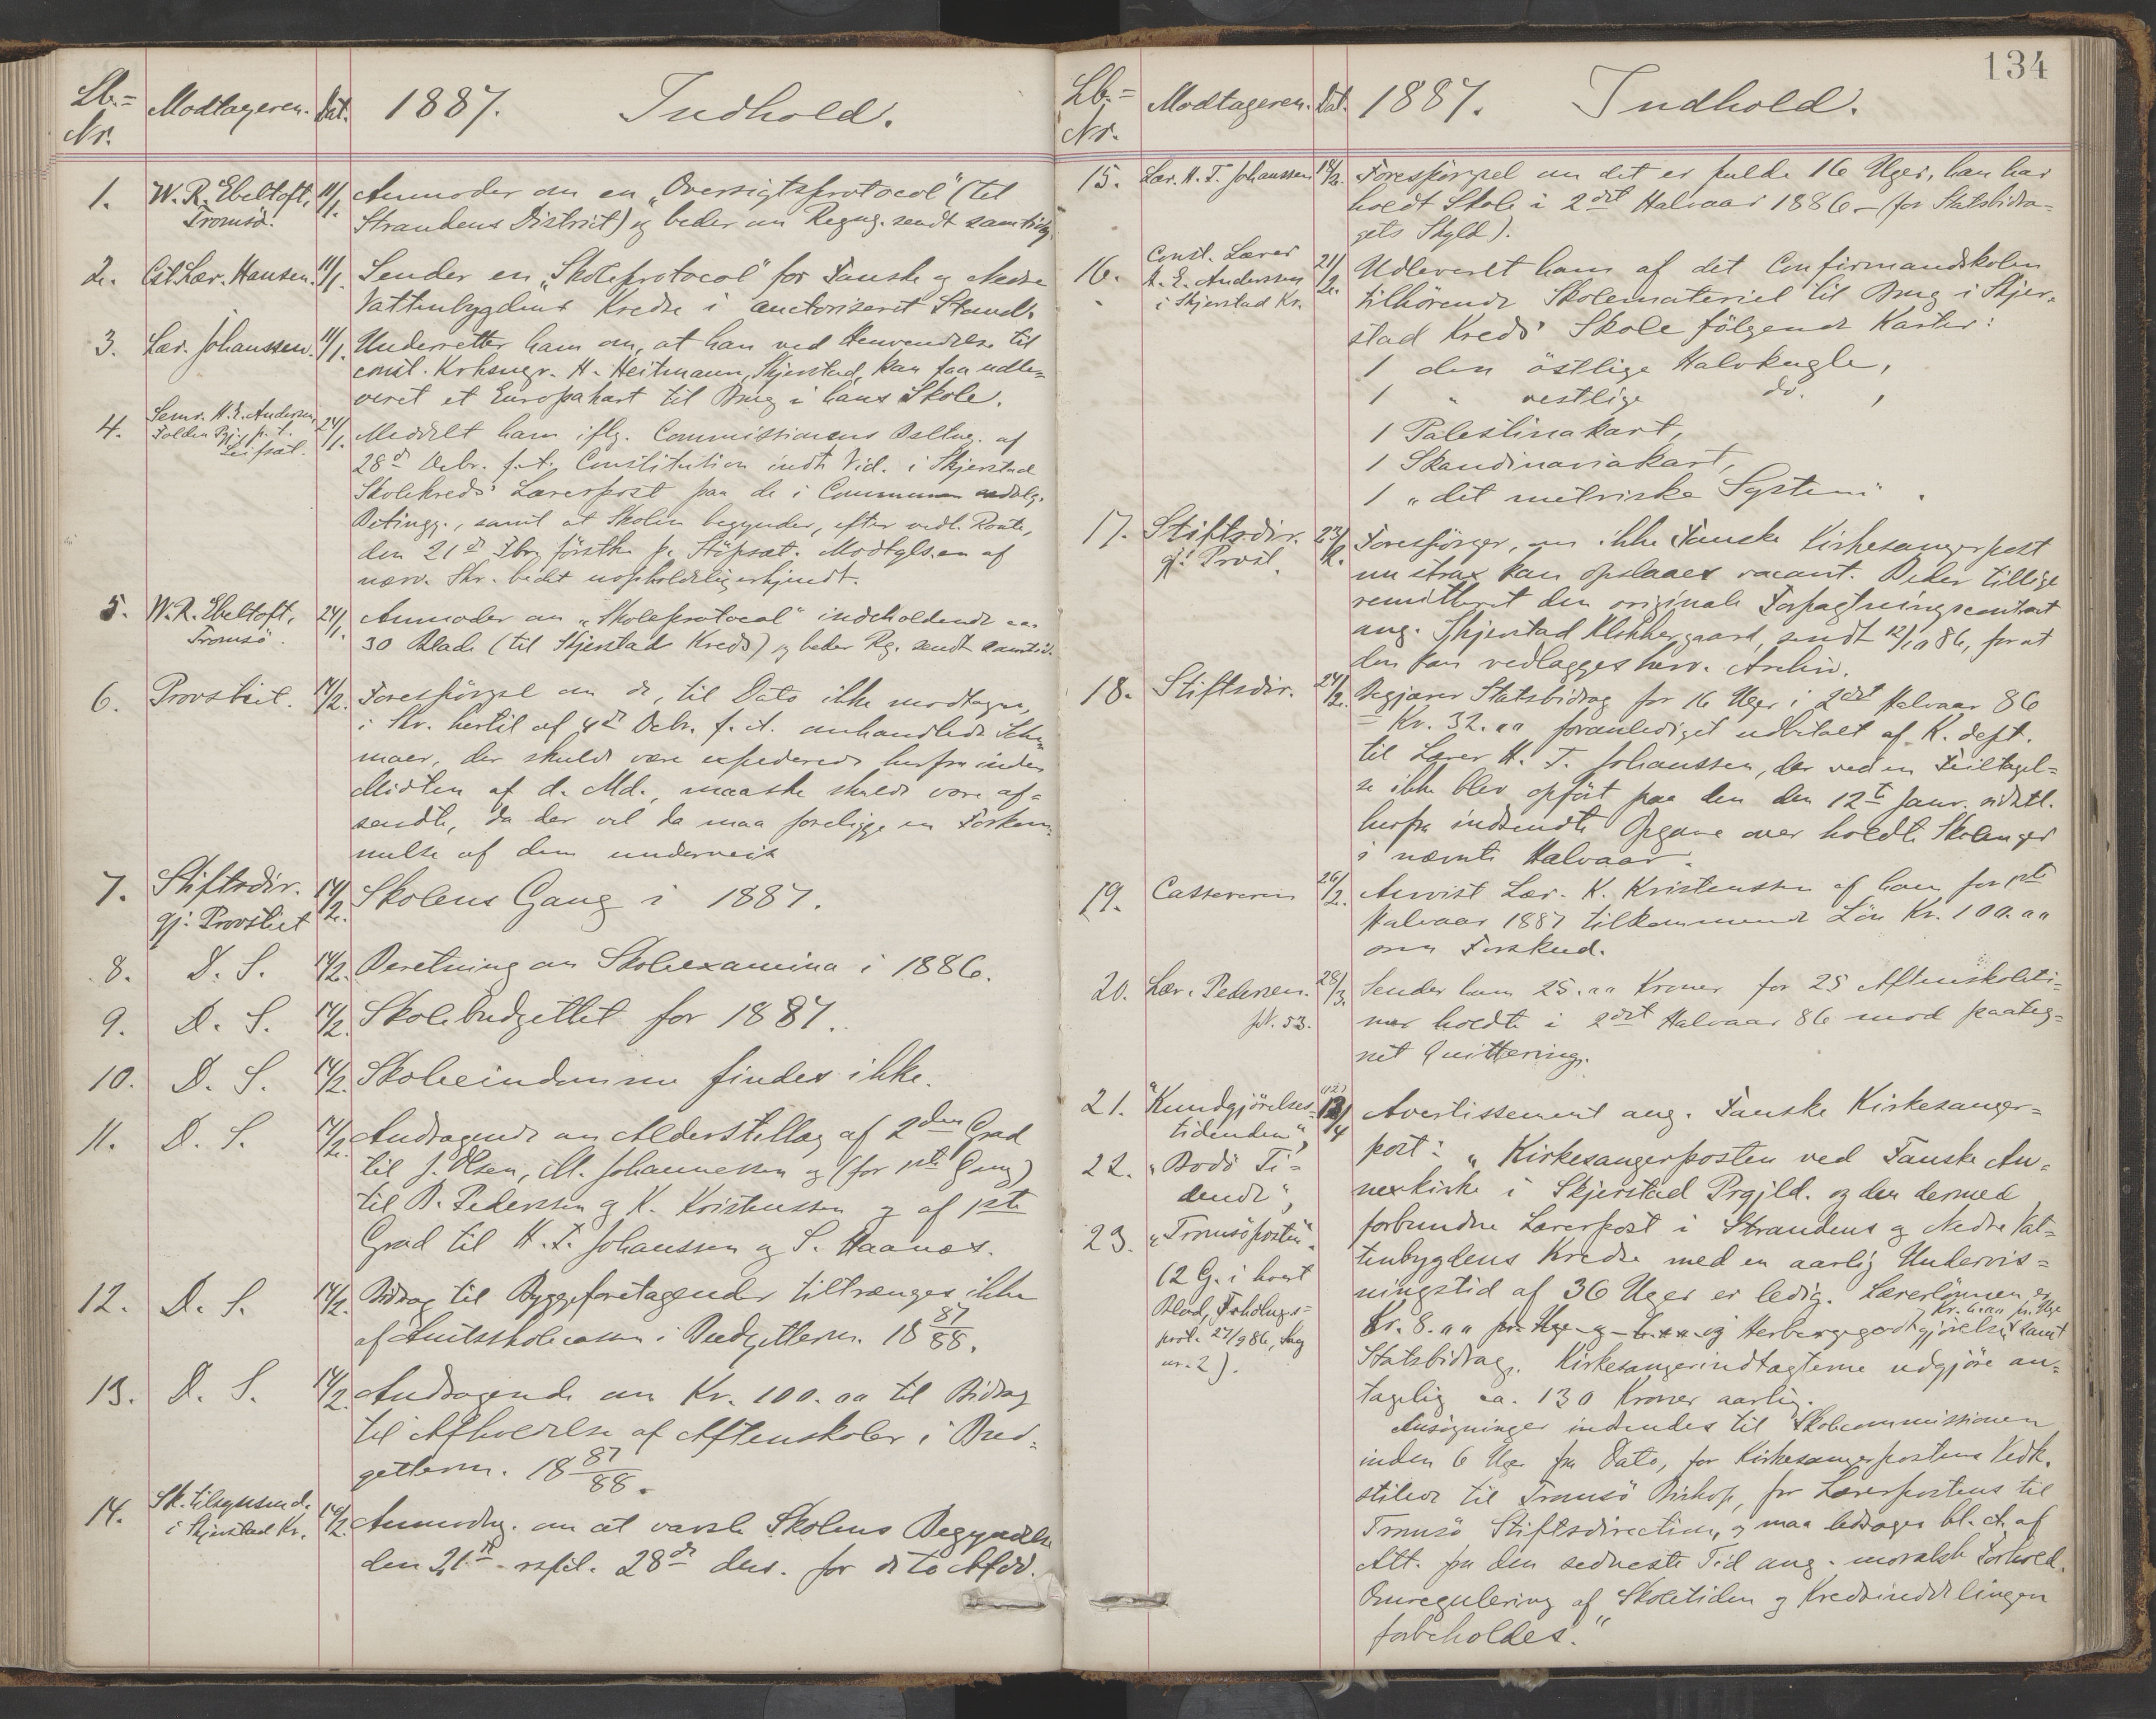 Lb.= Nr. Modtageren. Dat. 1887. Indhold.
1. W. R. Ebeltoft, Tromsö. 11/1. Anmoder om en „Oversigtsprotocol" (til
Strandens District) og beder om Regng. sendt samtidig.
2. Cst. Lær. Hansen. 11/1. Sender en „Skoleprotocol" for Fauske og Nedre
Vattenbygdens Kredse i auctoriseret Stand.
3. Lær. Johanssen. 11/1. Underretter ham om, at han ved Henvendelse til
const. Krksngr. H. Heitmann, Skjerstad, kan faa udle=
veret et Europakart til Brug i hans Skole.
4. Semr. H. E. Andersen, Folden Pgj., p. t. Leifset. 24/1. Meddelt ham iflg. Commissionens Besltng. af
28de Decbr. f. A. Constitution indt. Vid. i Skjerstad
Skolekreds' Lærerpost paa de i Communen
Betingg., samt at Skolen begynder, efter vedl. Route,
den 21de Fbr. förstk. p. Stöpset. Modtgls.en af
nærv. Skr. bedst uopholdelig erkjendt.
5. W. R. Ebeltoft, Tromsö. 24/1. Anmoder om „Skoleprotocol" indeholdende ca.
30 Blade (til Skjerstad Kreds) og beder Rg. sendt samtid.
6. Provstiet. 14/2. Forespörgsel om de, til Dato ikke modtagne,
i Skr. hertil af 4de Decbr. f. A. omhandlede Sche=
maer, der skulde være expederede herfra inden
Midten af d. Md., maaske skulde være af=
sendte, da der vel da maa foreligge en Forkom=
melse af dem underveis
7. Stiftsdir. gj: Provstiet 14/2. Skolens Gang i 1887.
8. D. S. 14/2. Beretning om Skoleexamina i 1886.
9. D. S. 14/2. Skolebudgettet for 1887.
10. D. S. 14/2. Skoleeindomme findes ikke.
11. D. S. 14/2. Andragende om Alderstillæg af 2den Grad
til J. Olsen, M. Johannessen og (for 1ste Gang)
til B. Pedersen og K. Kristenssen og af 1ste
Grad til H. T. Johanssen og S. Haanæs.
12. D. S. 14/2. Bidrag til Byggeforetagender tiltrænges ikke
af Amtsskolecassen i Budgetterm. 18 87/88.
13. D. S. 14/2. Andragende om Kr. 100.00 til Bidrag
til Afholdelse af Aftenskoler i Bud=
getterm. 18 87/88.
14. Sk. tilsynsmd. i Skjerstad Kr. 14/2. Anmodng. om at varsle Skolens Begyndelse
den 21de respl. 28de ds. for de to Afdd.
134
Lb.= Nr. Modtageren. Dat. 1887. Indhold.
15. Lær. H. T. Johanssen 18/2. Forespörgsel om det er fulde 16 Uger, han har
holdt Skole i 2det Halvaar 1886 – (for Statsbidra=
gets Skyld).
16. Const. Lærer H. E. Andersen i Skjerstad Kr. 21/2. Udleveret ham af det Confirmandskolen
tilhörende Skolemateriel til Brug i Skjer=
stad Kreds' Skole fölgende Karter:
1 den östlige Halvkugle,
1 " vestlige do. ,
1 Palestinakart,
1 Skandinaviakart,
1 „det metriske System" .
17. Stiftsdir. gj: Provst. 23/2. Forespörger, om ikke Fauske Kirkesangerpost
nu strax kan opslaaes vacant. Beder tillige
remitteret den originale Forpagtningscontract
ang. Skjerstad Klokkergaard, sendt 12/10 86, for at
den kan vedlægges herv. Archiv.
18. Stiftsdir. 24/2. Begjærer Statsbidrag for 16 Uger i 2det Halvaar 86
= Kr. 32.00 foranlediget udbetalt af K. dept.
til Lærer H. T. Johanssen, der ved en Feiltagel=
se ikke blev opfört paa den den 12te Janr. sidstl.
herfra indsendte Opgave over holdte Skoleuger
i nævnte Halvaar.
19. Cassereren 26/2. Anvist Lær. K. Kristenssen af ham for 1ste
Halvaar 1887 tilkommende Lön Kr. 100.00
som Forskud.
20. Lær. Pedersen. 28/3. Sender ham 25.00 Kroner for 25 Aftenskoleti=
mer holdte i 2det Halvaar 86 mod paateg=
net Quittering.
21. "Kundgjörelses= tidenden", 12/4 Avertissement ang. Fauske Kirkesanger=
22. „Bodö Ti= dende", post: „Kirkesangerposten ved Fauske An=
nexkirke i Skjerstad Prgjld. og den dermed
23. „Tromsöposten" forbundne Lærerpost i Strandens og Nedre Vat=
(2 G. i hvert tenbygdens Kredse med en aarlig Undervis=
Blad, Frhdlngs= ningstid af 36 Uger er ledig. Lærerlönnen er
prot. 27/9 86, Sag Kr. 8.00 pr. Uge og Herbergegodtgjörelse Kr. 6.00 pr. Uge samt
nr. 2). Statsbidrag. Kirkesangerindtægterne udgjöre an=
tagelig ca. 130 Kroner aarlig.
Ansögninger indsendes til Skolecommissionen
inden 6 Uger fra Dato, for Kirkesangerpostens Vedk.
stilede til Tromsö Biskop, for Lærerpostens til
Tromsö Stiftsdirection, og maa ledsages bl. A. af
Att. fra den sedneste Tid ang. moralsk Forhold.
Omregulering af Skoletiden og Kredsinddelingen
forbeholdes."